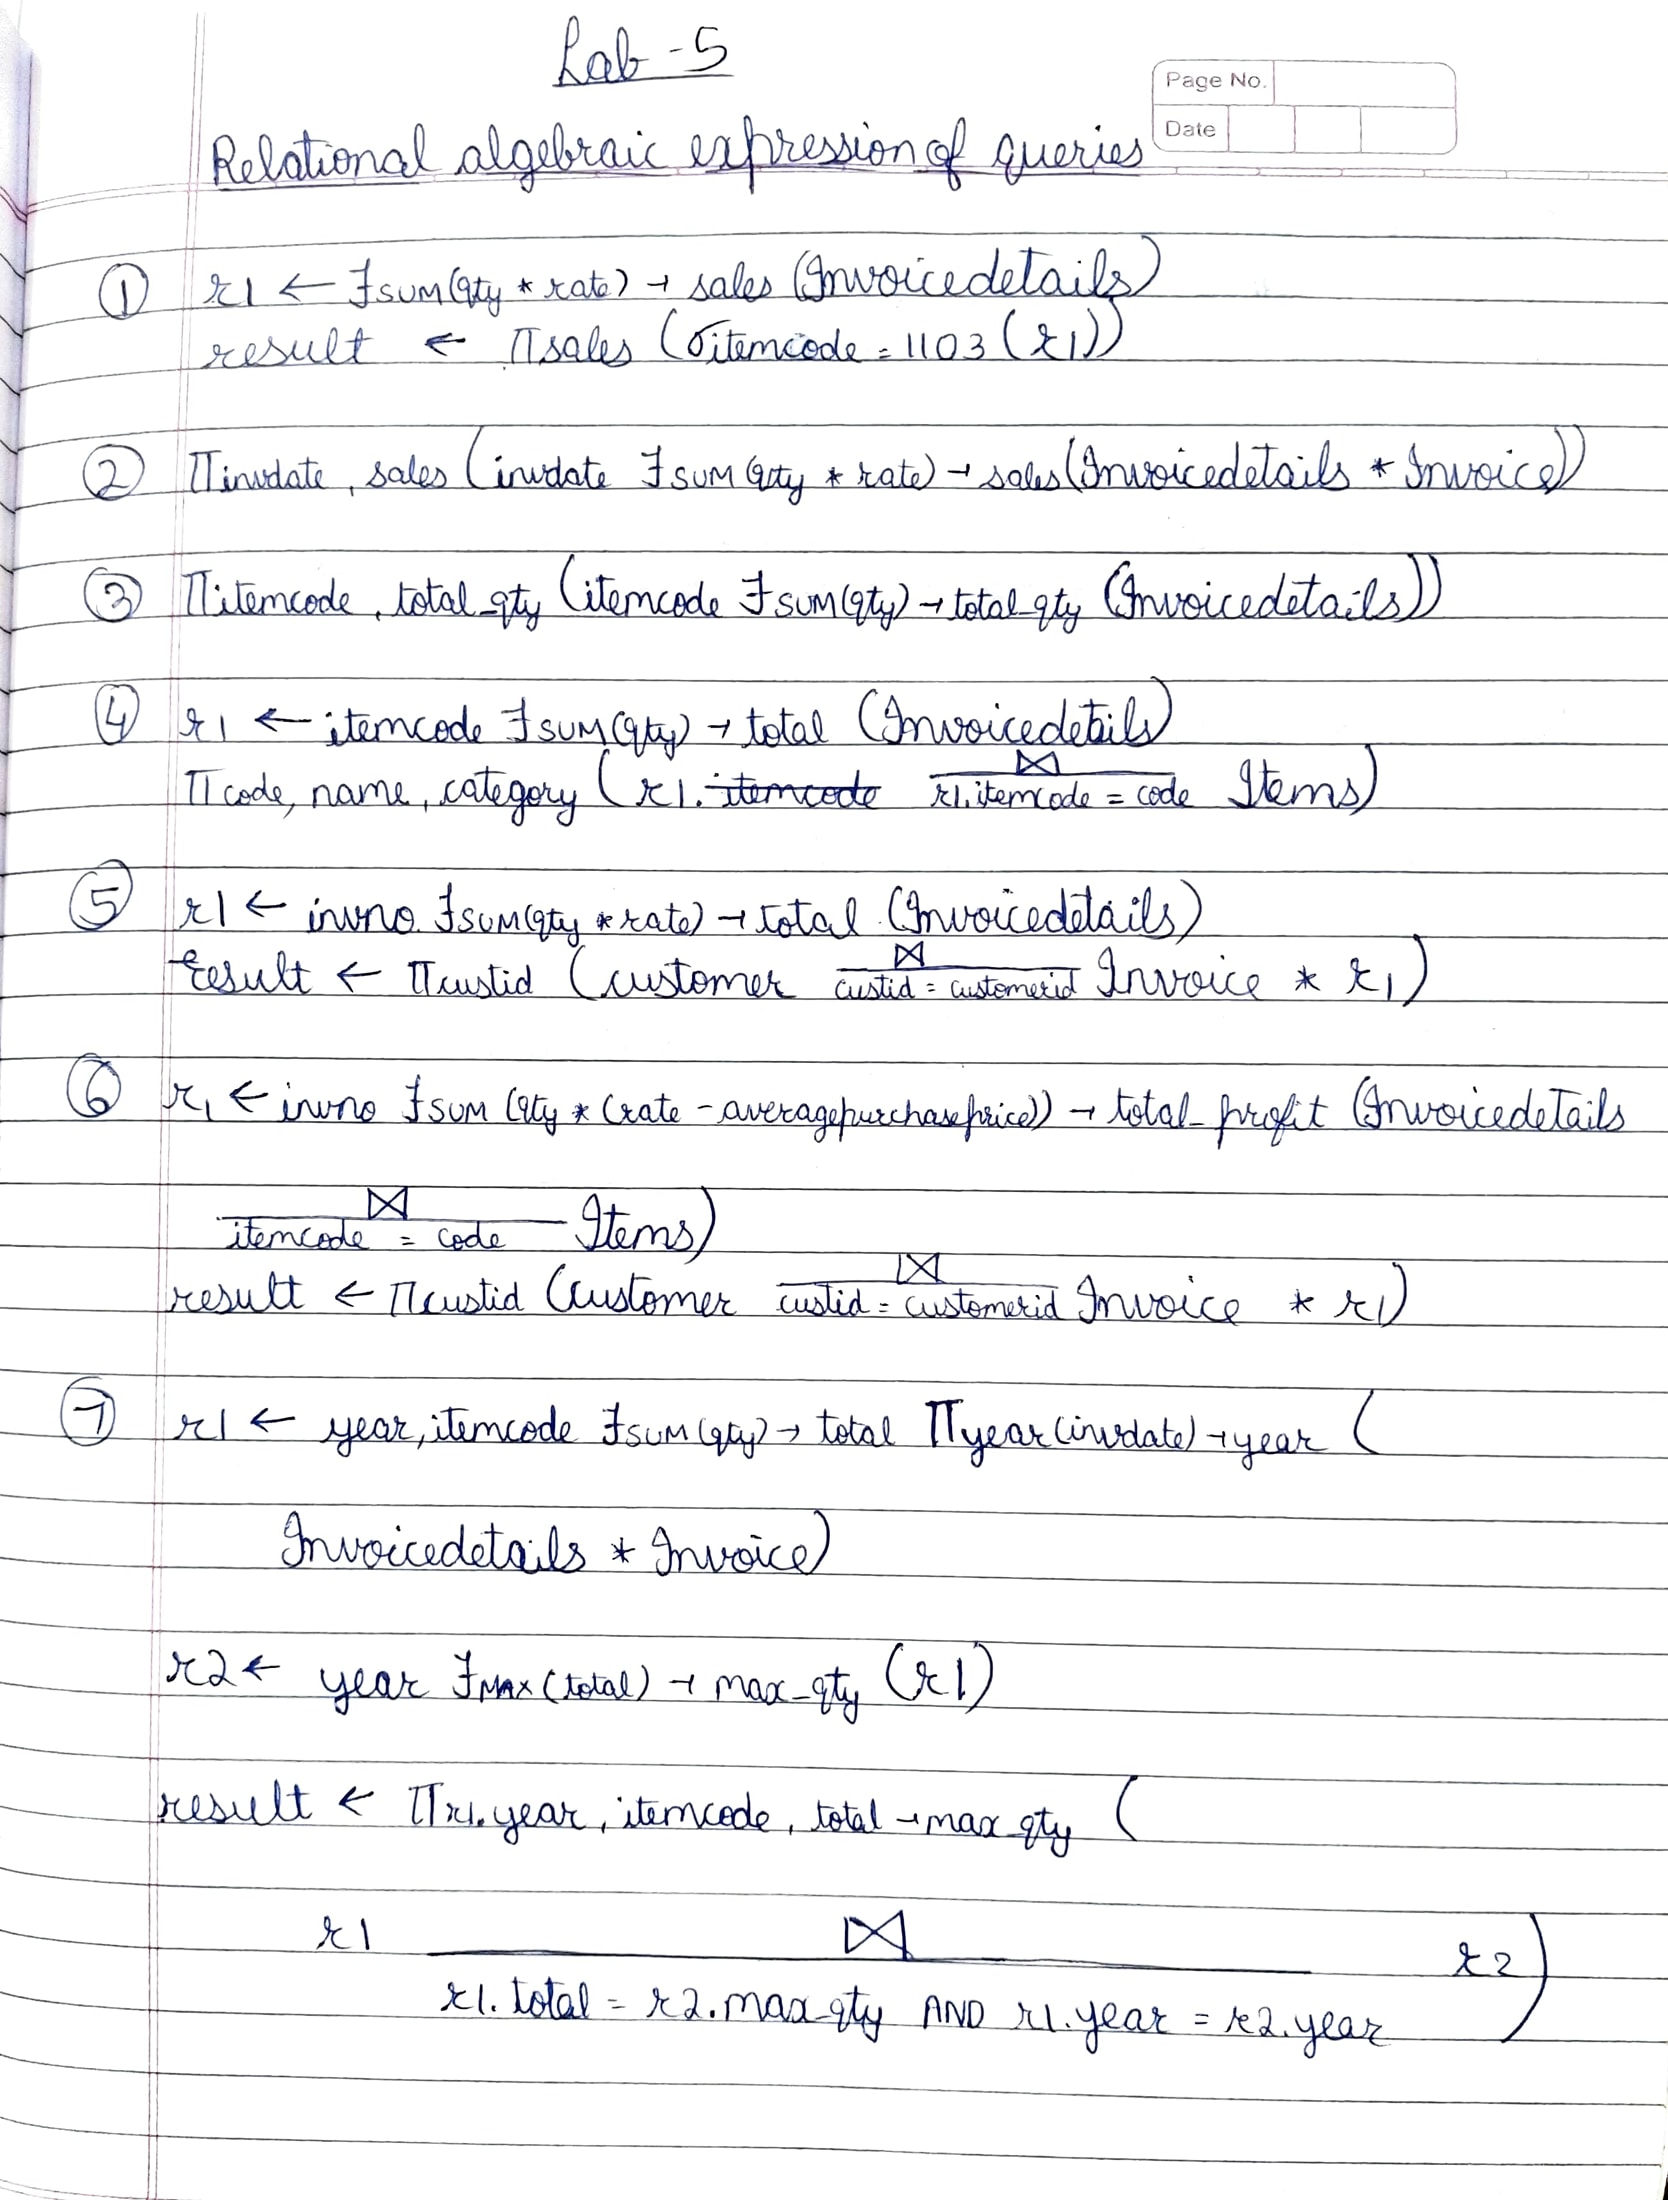 Lab - 5
Page No.
Date
Relational algebraic expression of queries
① r1 ← ℱ SUM(qty * rate) → sales (Invoicedetails)
result ← π sales (σ itemcode = 1103 (r1))
② π invdate, sales (invdate ℱ SUM(qty * rate) → sales (Invoicedetails * Invoice))
③ π itemcode, total_qty (itemcode ℱ SUM(qty) → total_qty (Invoicedetails))
④ r1 ← itemcode ℱ SUM(qty) → total (Invoicedetails)
π code, name, category (r1. itemcode ⋈ r1.itemcode = code Items)
⑤ r1 ← invno ℱ SUM(qty * rate) → total (Invoicedetails)
result ← π custid (customer ⋈ custid = customerid Invoice * r1)
⑥ r1 ← invno ℱ SUM (qty * (rate - averagepurchaseprice)) → total_profit (Invoicedetails
⋈ itemcode = code Items)
result ← π custid (customer ⋈ custid = customerid Invoice * r1)
⑦ r1 ← year, itemcode ℱ SUM(qty) → total π year(invdate) → year (
Invoicedetails * Invoice)
r2 ← year ℱ MAX(total) → max_qty (r1)
result ← π r1.year, itemcode, total → max_qty (
r1 ⋈ r2)
r1.total = r2.max_qty AND r1.year = r2.year